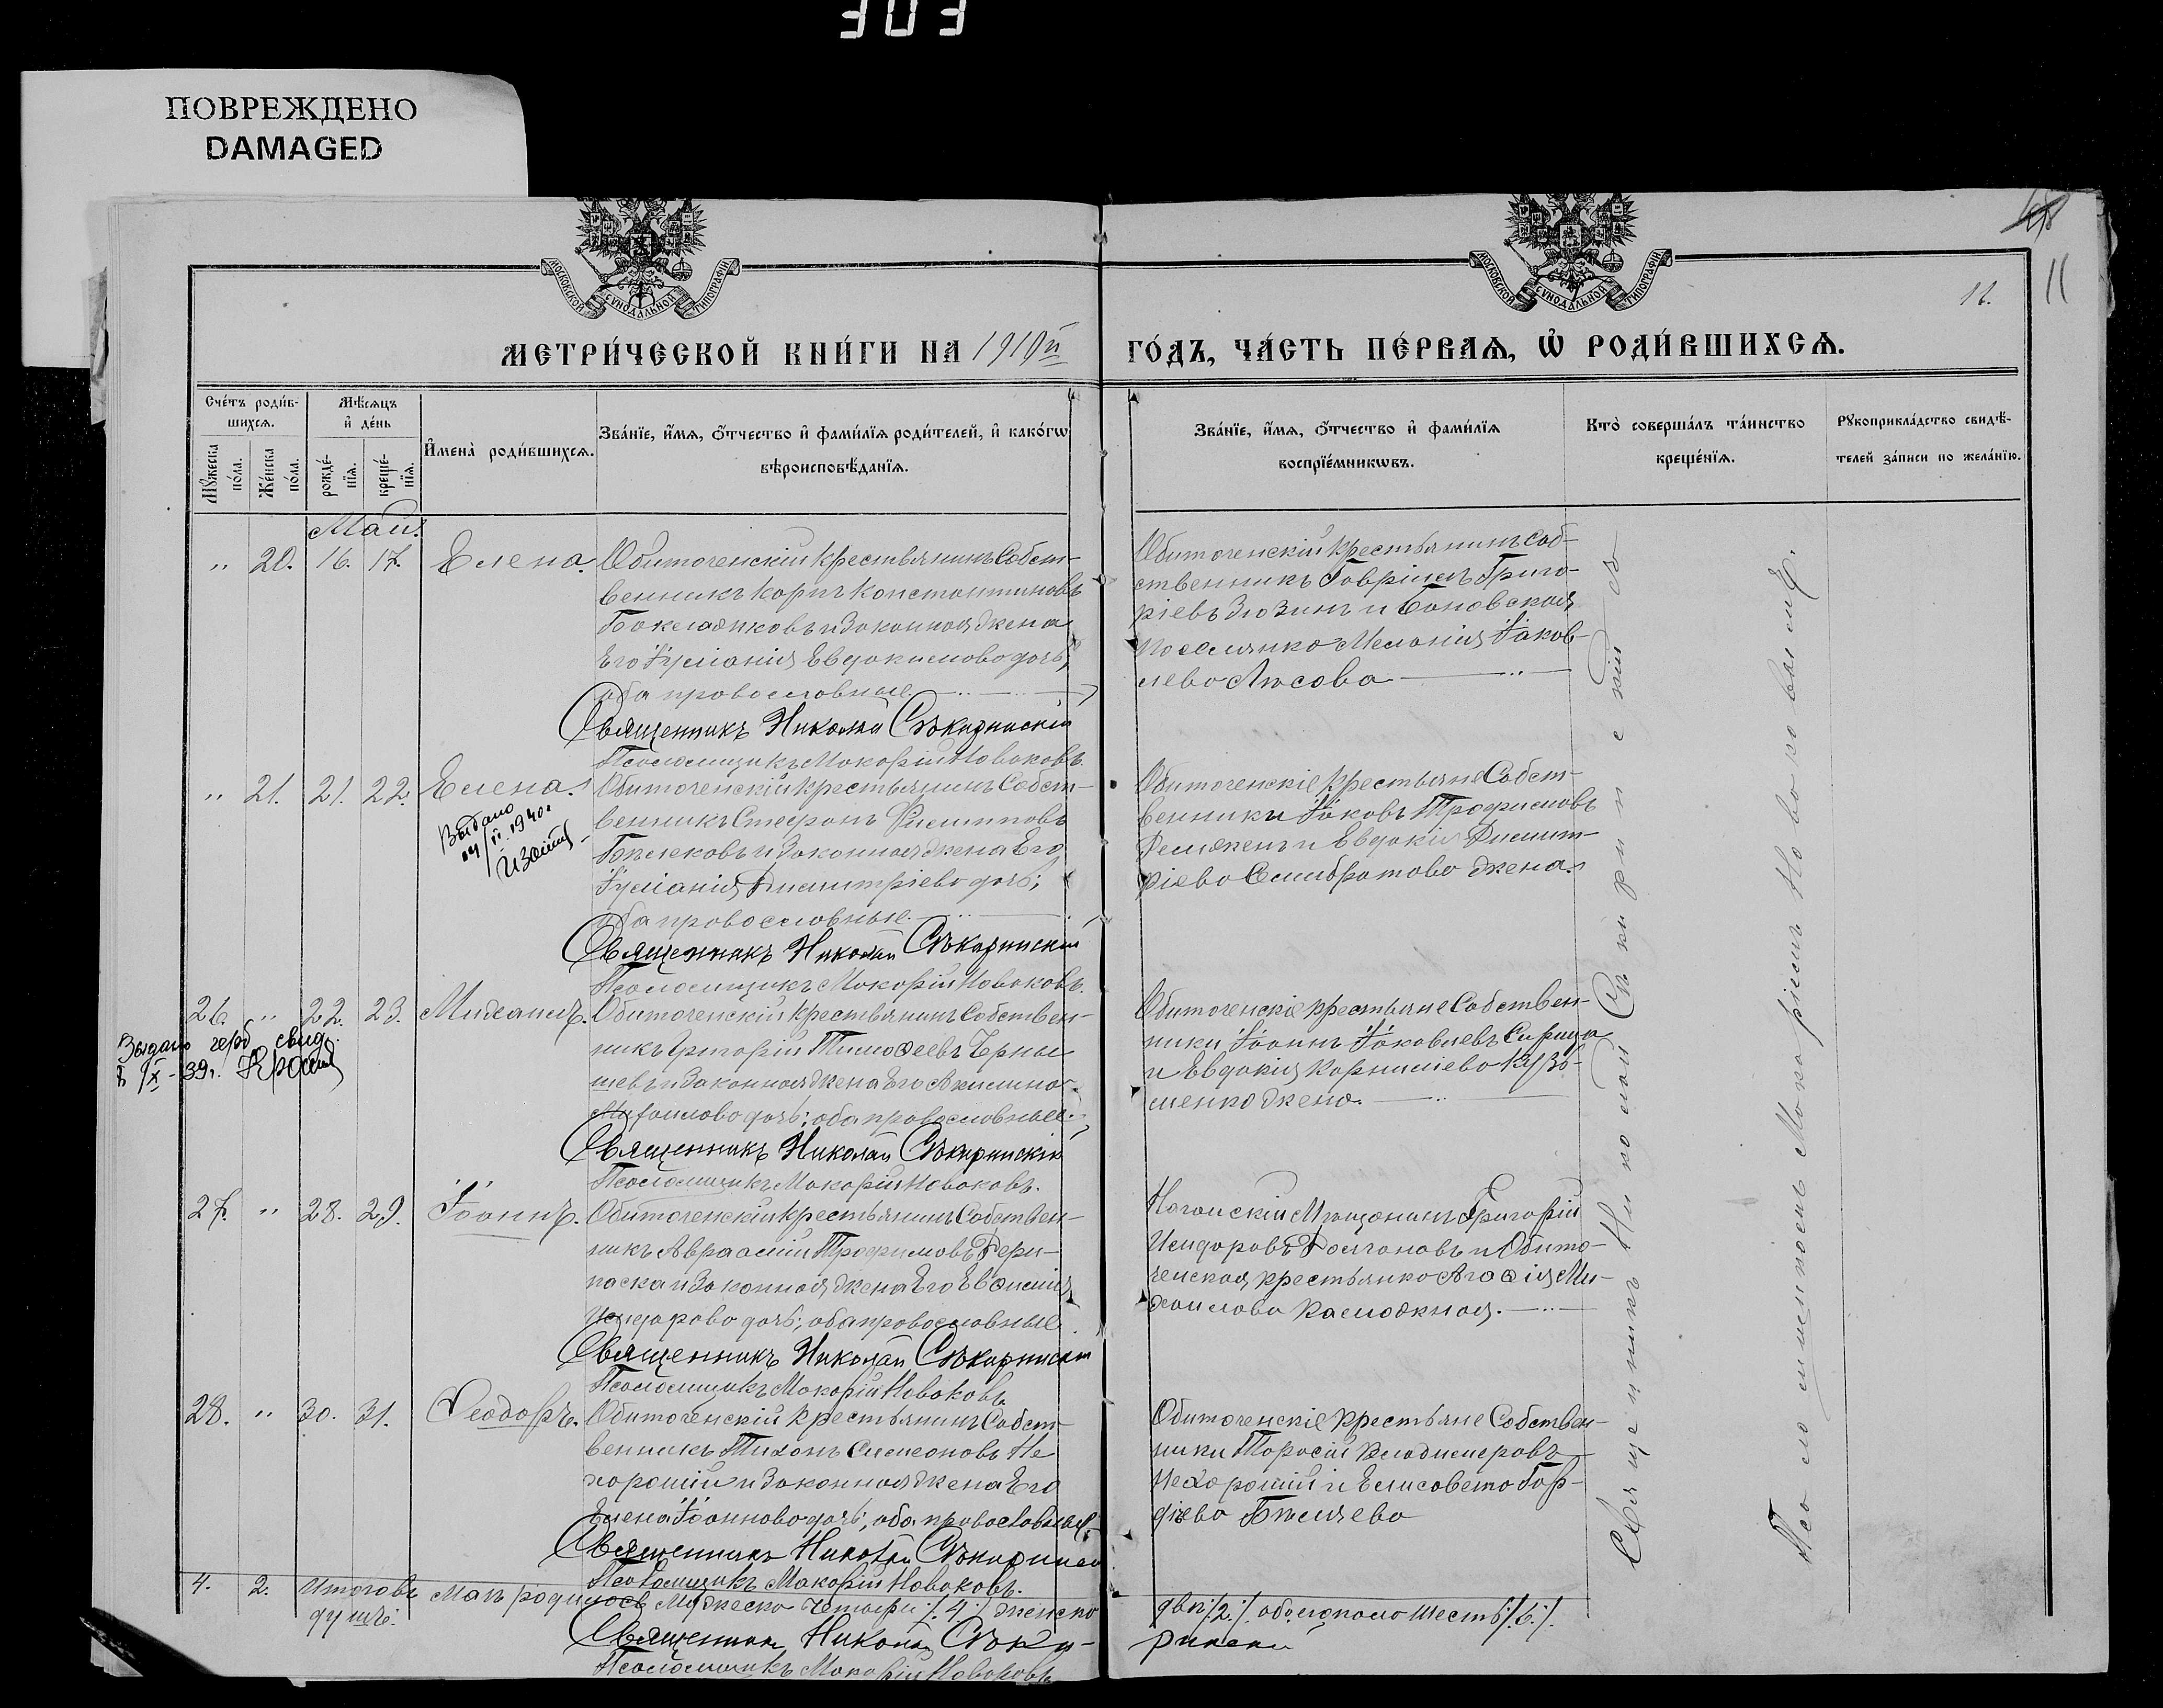 303
ПОВРЕЖДЕНО
DAMAGED
11
11.
МОСКОВСКОЙ СѴНОДАЛЬНОЙ ТИПОГРАФІИ
МОСКОВСКОЙ СѴНОДАЛЬНОЙ ТИПОГРАФІИ
МЕТРИ́ЧЕСКОЙ КНИ́ГИ НА
ГО́ДЪ, ЧА́СТЬ ПЕ́РВАѦ, Ѡ҆ РОДИ́ВШИХСѦ.
Сче́тъ роди́в-
шихсѧ.
Мꙋ́жеска по́ла.
Же́нска по́ла.
Мѣ́сѧцъ
и҆ де́нь
рожде́-
нїѧ.
креще́-
нїѧ.
И҆мена̀ роди́вшихсѧ.
Зва́нїе, и҆́мѧ, ѻ҆́тчество и҆ фами́лїѧ роди́телей, и҆ како́гѡ
вѣроисповѣ́данїѧ.
Зва́нїе, и҆́мѧ, ѻ҆́тчество и҆ фами́лїѧ
воспрїе́мникѡвъ.
Кто̀ соверша́лъ та́инство
креще́нїѧ.
Рꙋкоприкла́дство свидѣ́-
телей за́писи по жела́нїю.
Май.
" 20. 16. 17. Елена.
Обиточенскій крестьянинъ Собст-
венникъ Карпъ Константиновъ
Баклажковъ и законная жена
Его Іуліанія Евдокимова дочь,
оба православные
Священникъ Николай Съкиринскій
Псаломщикъ Макарій Новаковъ.
Обиточенскій крестьянинъ Соб-
ственникъ Гавріилъ Григо-
ріевъ Зюзинъ и Бановская
поселянка Меланія Іаков-
лева Лисова
" 21. 21. 22. Елена.
Выдано
1940г
Обиточенскій крестьянинъ Собст-
венникъ Стефанъ Филипповъ
и законная жена Его
Іуліанія Димитріева дочь;
оба православные.
Священникъ Николай Съкиринскій
Псаломщикъ Макарій Новаковъ.
Обиточенскіе крестьяне Собст-
венники Іаковъ Трофимовъ
и Евдокія Димит-
ріева Семибратова жена.
26. " 22. 23. Михаилъ.
Выдано герб. свид.
IX-39г.
Обиточенскій крестьянинъ Собствен-
никъ Григорій Тимоѳеевъ Черны-
шевъ и законная жена Его Акилина
Михаилова дочь; оба православные.
Священникъ Николай Съкиринскій
Псаломщикъ Макарій Новаковъ.
Обиточенскіе крестьяне Собствен-
ники Іоаннъ Іаковлевъ Сирица
и Евдокія Корнилиева Кузь-
менко жена.
27. " 28. 29. Іоаннъ.
Обиточенскій крестьянинъ Собствен-
никъ Авраамій Трофимовъ Дери-
паска и законная жена Его Евѳимія
Исидорова дочь; оба православные
Священникъ Николай Съкиринскій
Псаломщикъ Макарій Новаковъ.
Ногайскій Мѣщанинъ Григорій
Исидоровъ Долгановъ и Обито-
ченская крестьянка Агаѳія Ми-
хаилова Каложная.
28. " 30. 31. Ѳеодоръ.
Обиточенскій крестьянинъ Собст-
венникъ Тихонъ Симеоновъ Не
хорошій и законная жена Его
Елена Іоаннова дочь; оба православные.
Священникъ Николай Съкиринскій
Псаломщикъ Макарій Новаковъ.
Обиточенскіе крестьяне Собствен-
ники Тарасій Владимеровъ
Нехорошій и Елисавета Гор-
діева
Священникъ Николай Съкиринскій
Псаломщикъ Макарій Новаковъ
4. 2. Итоговъ Маѣ родилось Мужеска четыри /.4./ женска двѣ /.2./ обоегополо шесть /.6./.
душъ.
Священникъ Николай Съки-
ринскій
Псаломщикъ Макарій Новаковъ